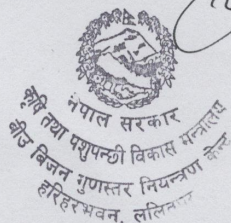 नेपाल सरकार
कृषि तथा पशुपन्छी विकास मन्त्रालय
बीउ बिजन गुणस्तर नियन्त्रण केन्द्र
हरिहरभवन, ललितपुर